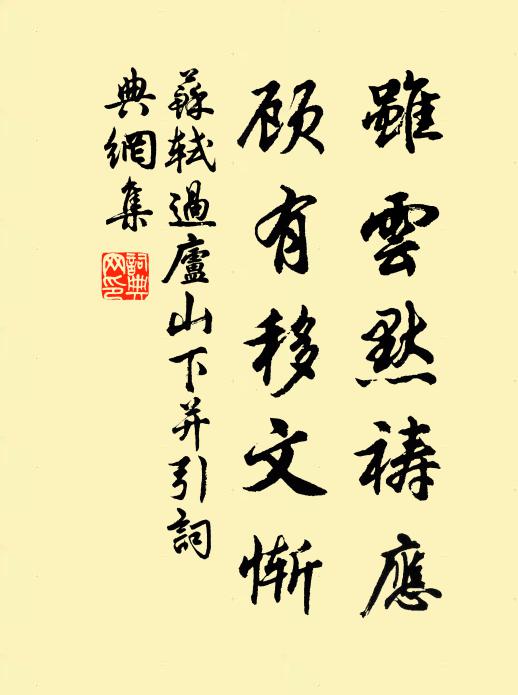 雖雲默禱應
顧有移文慚
蘇軾過廬山下并引詞
典網集
詞典網印